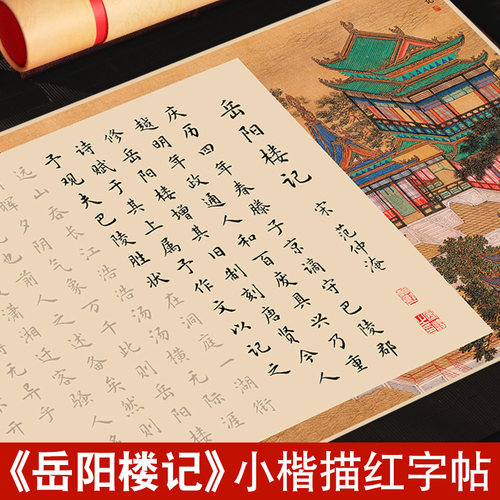 岳阳楼记
宋 范仲淹
庆历四年春滕子京谪守巴陵郡
越明年政通人和百废具兴乃重
修岳阳楼增其旧制刻唐贤今人
诗赋于其上属予作文以记之
予观夫巴陵胜状在洞庭一湖衔
远山吞长江浩浩汤汤横无际涯
晖夕阴气象万千此则岳阳楼
也前人之述备矣然则
潇湘迁客骚
无异乎
《岳阳楼记》小楷描红字帖